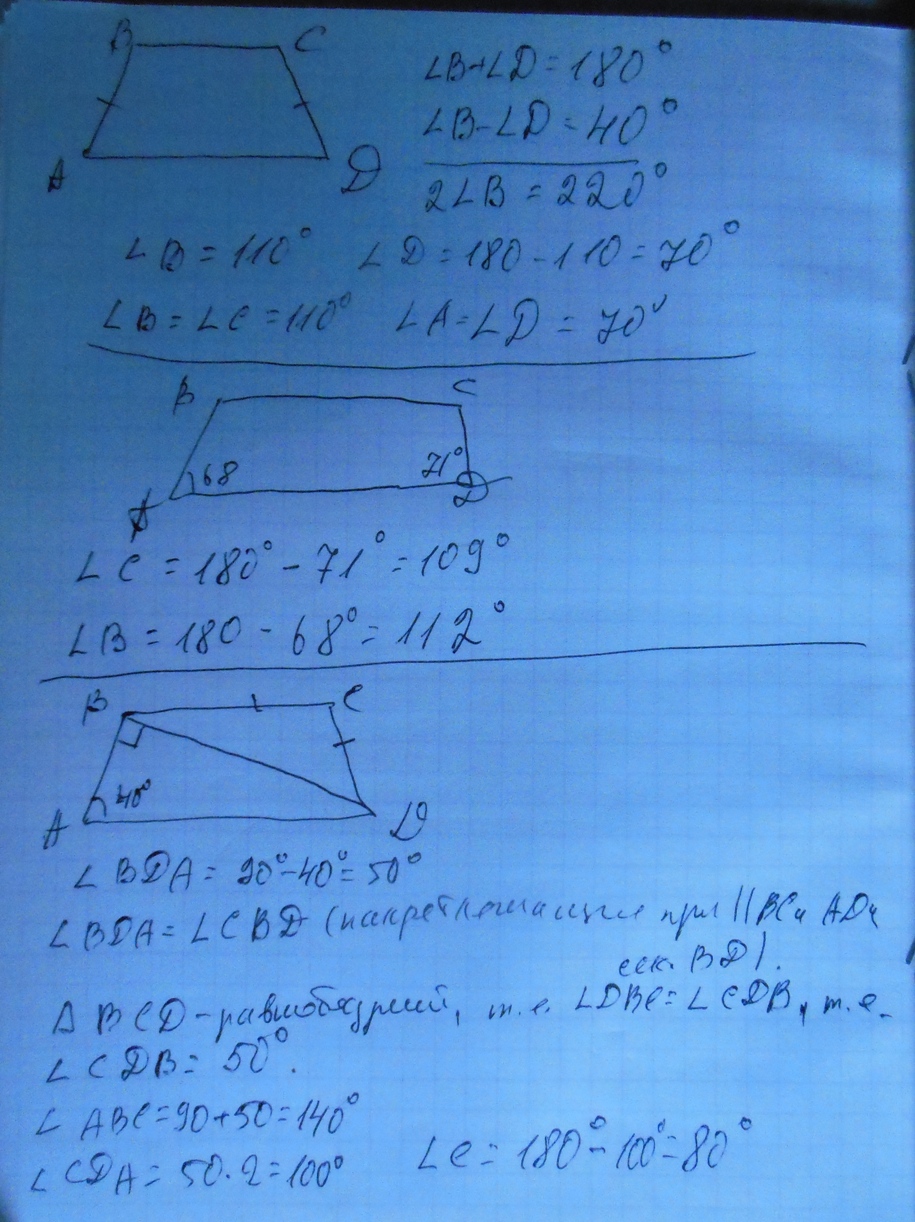 B C
A D
∠B+∠D=180°
∠B-∠D=40°
2∠B=220°
∠B=110° ∠D=180-110=70°
∠B=∠C=110° ∠A=∠D=70°
B C
68 71°
A D
∠C=180°-71°=109°
∠B=180-68°=112°
B C
40°
A D
∠BDA=90°-40°=50°
∠BDA=∠CBD (накрестлежащие при ||BC и AD и
сек. BD).
Δ BCD-равнобедрный, т.е. ∠DBC=∠CDB, т.е.
∠CDB=50°.
∠ABC=90+50=140°
∠CDA=50·2=100° ∠C=180°-100°=80°